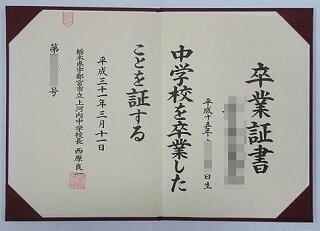 卒業証書
平成十五年
日生
中学校を卒業した
ことを証する
平成三十一年三月十一日
栃木県宇都宮市立上河内中学校長 西原良一
第
号